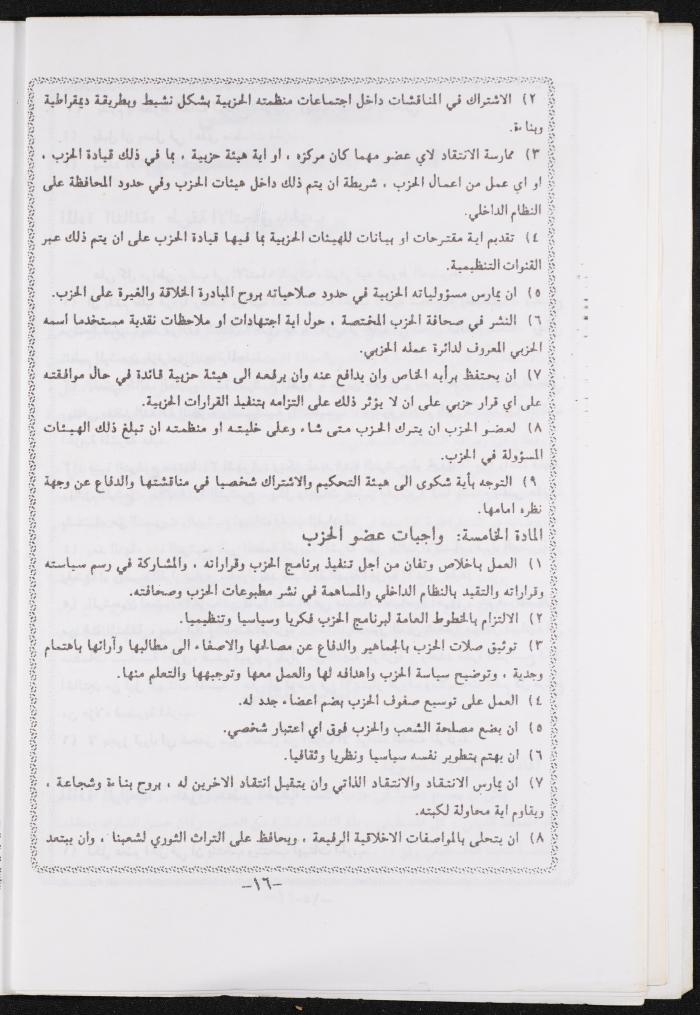 ٢) الاشتراك في المناقشات داخل اجتماعات منظمته الحزبية بشكل نشيط وبطريقة ديمقراطية
وبناءة.
٣) ممارسة الانتقاد لاي عضو مهما كان مركزه ، او اية هيئة حزبية ، بما في ذلك قيادة الحزب ،
او اي عمل من اعمال الحزب ، شريطة ان يتم ذلك داخل هيئات الحزب وفي حدود المحافظة على
النظام الداخلي.
٤) تقديم اية مقترحات او بيانات للهيئات الحزبية بما فيها قيادة الحزب على ان يتم ذلك عبر
القنوات التنظيمية.
٥) ان يمارس مسؤولياته الحزبية في حدود صلاحياته بروح المبادرة الخلاقة والغيرة على الحزب.
٦) النشر في صحافة الحزب المختصة ، حول اية اجتهادات او ملاحظات نقدية مستخدما اسمه
الحزبي المعروف لدائرة عمله الحزبي.
٧) ان يحتفظ برأيه الخاص وان يدافع عنه وان يرفعه الى هيئة حزبية قائدة في حال موافقته
على اي قرار حزبي على ان لا يؤثر ذلك على التزامه بتنفيذ القرارات الحزبية.
٨) لعضو الحزب ان يترك الحزب متى شاء وعلى خليته او منظمته ان تبلغ ذلك الهيئات
المسؤولة في الحزب.
٩) التوجه بأية شكوى الى هيئة التحكيم والاشتراك شخصيا في مناقشتها والدفاع عن وجهة
نظره امامها.
المادة الخامسة: واجبات عضو الحزب
١) العمل باخلاص وتفان من اجل تنفيذ برنامج الحزب وقراراته ، والمشاركة في رسم سياسته
وقراراته والتقيد بالنظام الداخلي والمساهمة في نشر مطبوعات الحزب وصحافته.
٢) الالتزام بالخطوط العامة لبرنامج الحزب فكريا وسياسيا وتنظيميا.
٣) توثيق صلات الحزب بالجماهير والدفاع عن مصالحها والاصفاء الى مطالبها وأرائها باهتمام
وجدية ، وتوضيح سياسة الحزب واهدافه لها والعمل معها وتوجيهها والتعلم منها.
٤) العمل على توسيع صفوف الحزب بضم اعضاء جدد له.
٥) ان يضع مصلحة الشعب والحزب فوق اي اعتبار شخصي.
٦) ان يهتم بتطوير نفسه سياسيا ونظريا وثقافيا.
٧) ان يمارس الانتقاد والانتقاد الذاتي وان يتقبل انتقاد الاخرين له ، بروح بناءة وشجاعة ،
ويقاوم اية محاولة لكبته.
٨) ان يتحلى بالمواصفات الاخلاقية الرفيعة ، ويحافظ على التراث الثوري لشعبنا ، وان يبتعد
-١٦-